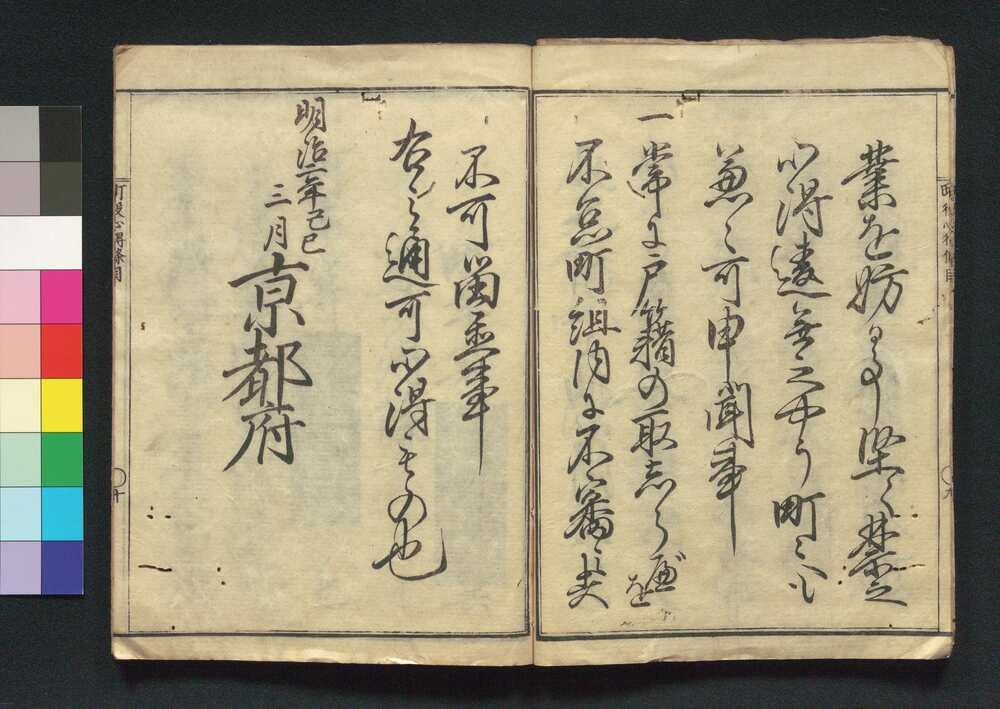 町役心得條目
九
業を妨る事堅く禁之
心得違無之やう町々も
兼々可申聞事
一常に戸籍の取しらべを
不怠町組内に不審之
不可留置事
右之通可心得もの也
明治二年己巳
三月
京都府
町役心得條目
十